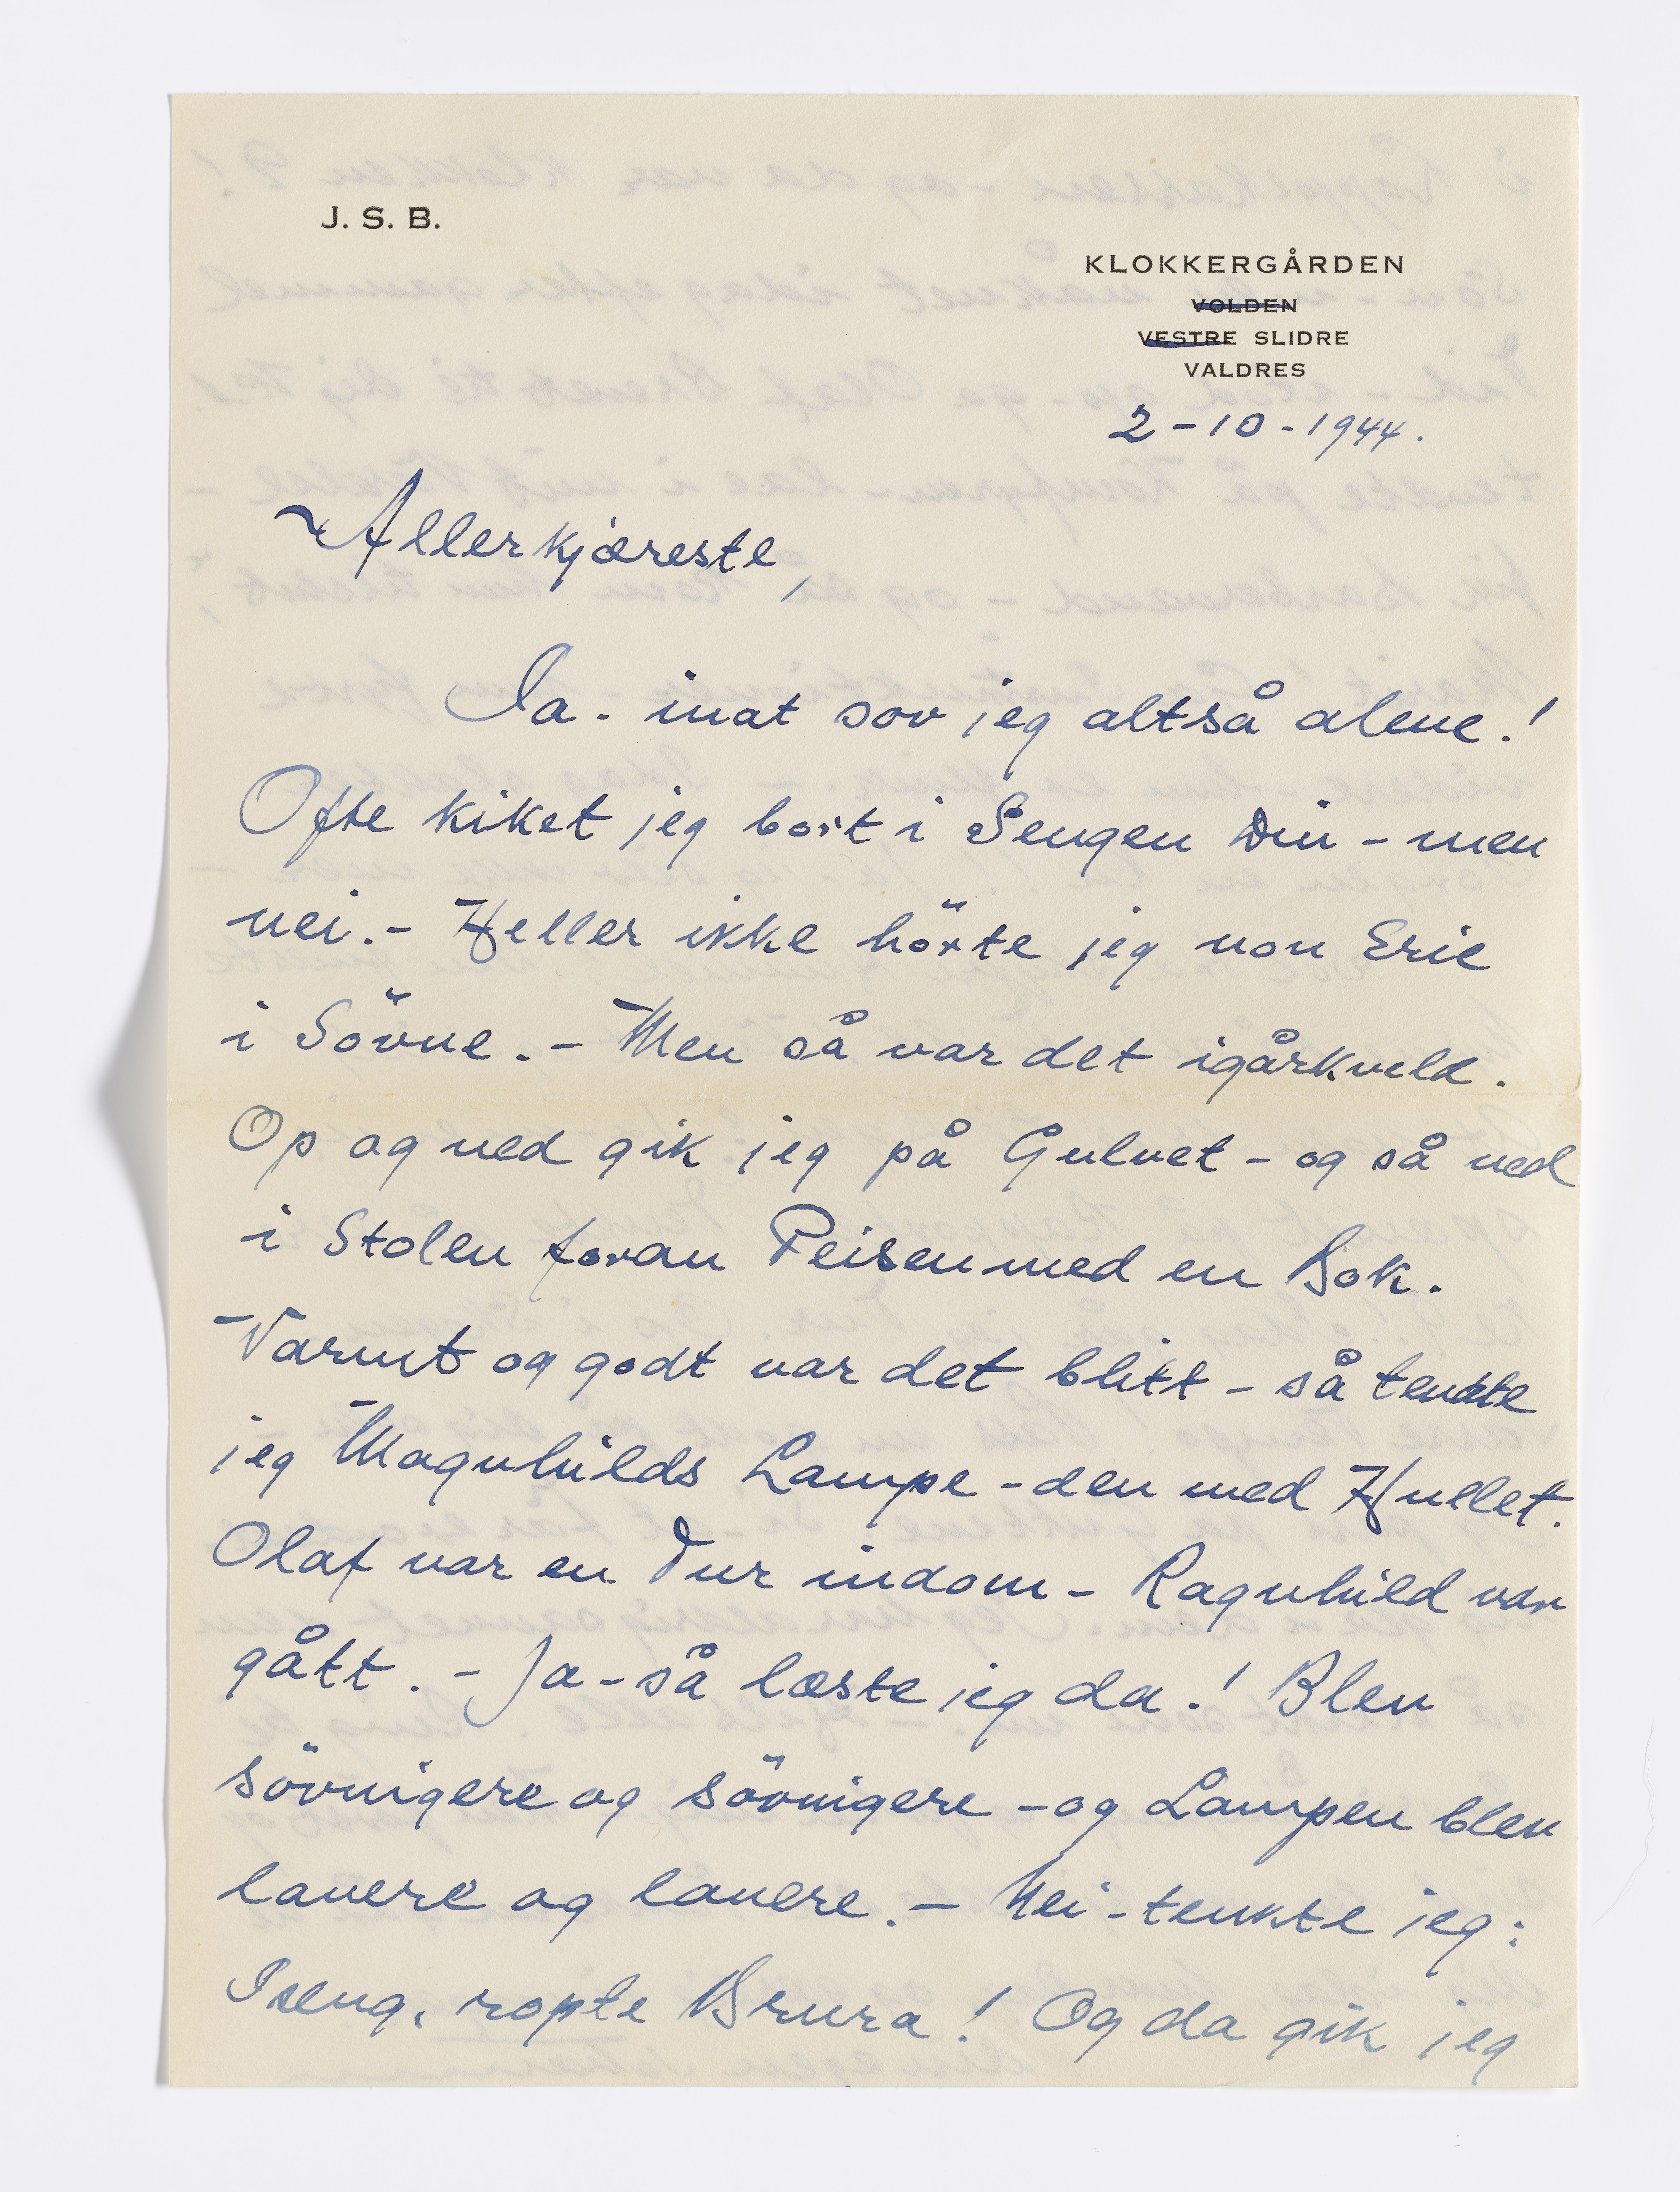 J. S. B.
KLOKKERGÅRDEN
VOLDEN
VESTRE SLIDRE
VALDRES
2-10-1944.
Allerkjæreste,
Ja. inat sov jeg altså alene!
Ofte kiket jeg bort i Sengen Din - men
nei. - Heller ikke hörte jeg non Erie
i Sövne. - Men så var det igårkveld.
Op og ned gik jeg på Gulvet - og så ned
i Stolen foran Peisen med en Bok.
Varmt og godt var det blitt - så tendte
jeg Magnhilds Lampe - den med Hullet.
Olaf var en Tur indom - Ragnhild var
gått. - Ja - så læste jeg da! Blev
sövnigere og sövnigere - og Lampen blev
lavere og lavere. - Nei - tenkte jeg:
Iseng, ropte Brura! Og da gik jeg